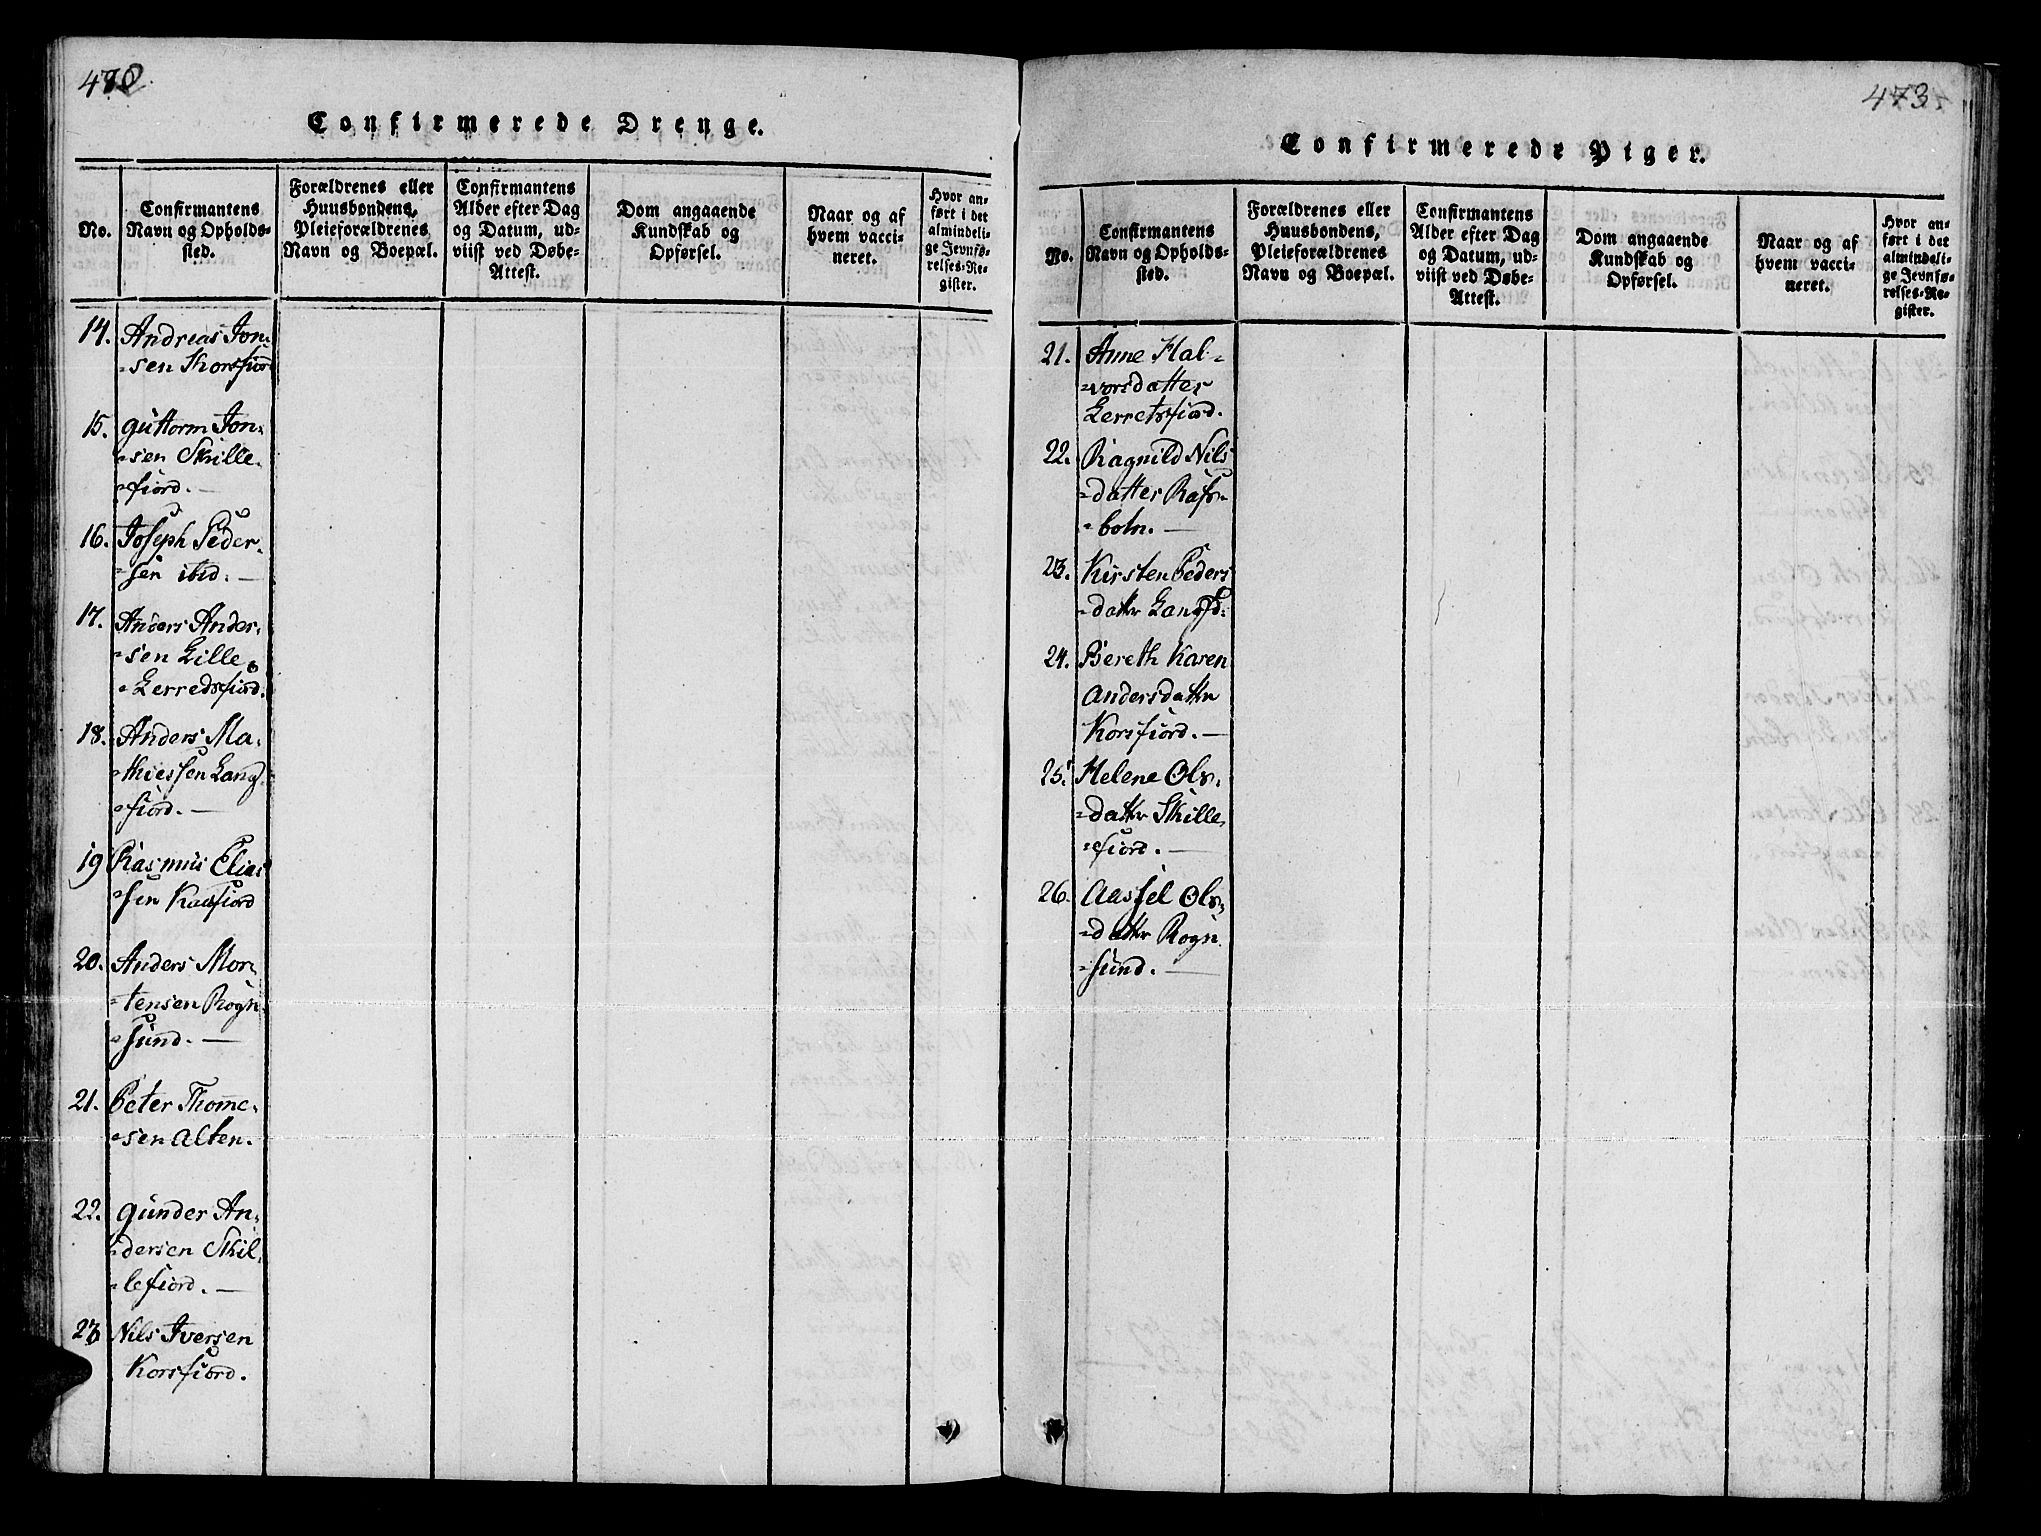 472
Confirmerede Drenge.
No.
Confirmantens
Navn og Opholds-
sted.
Forældrenes eller
Huusbondens,
Pleieforældrenes
Navn og Boepæl.
Confirmantens
Alder efter Dag
og Datum, ud-
viist ved Døbe-
Attest.
Dom angaaende
Kundskab og
Opførsel.
Naar og af
hvem vacci-
neret.
Hvor an-
ført i det
almindeli-
ge Jevnfø-
relses-Re-
gister.
14. Andreas Jon-
sen Korsfiord
15. Guttorm Jon-
sen Skille-
fiord.
16. Joseph Peder-
sen ibid.
17. Anders Ander-
sen Lille
Lerredsfiord.
18. Anders Ma-
thiessen Lang
fiord.
19 Rasmus Elias
sen Kaafiord
20. Anders Mor-
tensen Rogn
sund.
21. Peter Thome-
sen Alten.
22. Gunder An-
dersen Skil-
lefiord.
23 Nils Iversen
Korsfiord.
473
Confirmerede Piger.
No.
Confirmantens
Navn og Opholds-
sted.
Forældrenes eller
Huusbondens,
Pleieforældrenes
Navn og Boepæl.
Confirmantens
Alder efter Dag
og Datum, ud-
viist ved Døbe-
Attest.
Dom angaaende
Kundskab og
Opførsel.
Naar og af
hvem vacci-
neret.
Hvor an-
ført i det
almindeli-
ge Jevnfø-
relses-Re-
gister.
21. Anne Hal-
vorsdatter
Lerretsfiord.
22. Ragnild Nils
datter Rafs-
botn.
23. Kirsten Peders
datter Langfd:
24. Bereth Karen
Andersdatter
Korsfiord.
25. Helene Ols-
datter Skille
fiord.
26. Aassel Ols-
datter Rogn
sund.